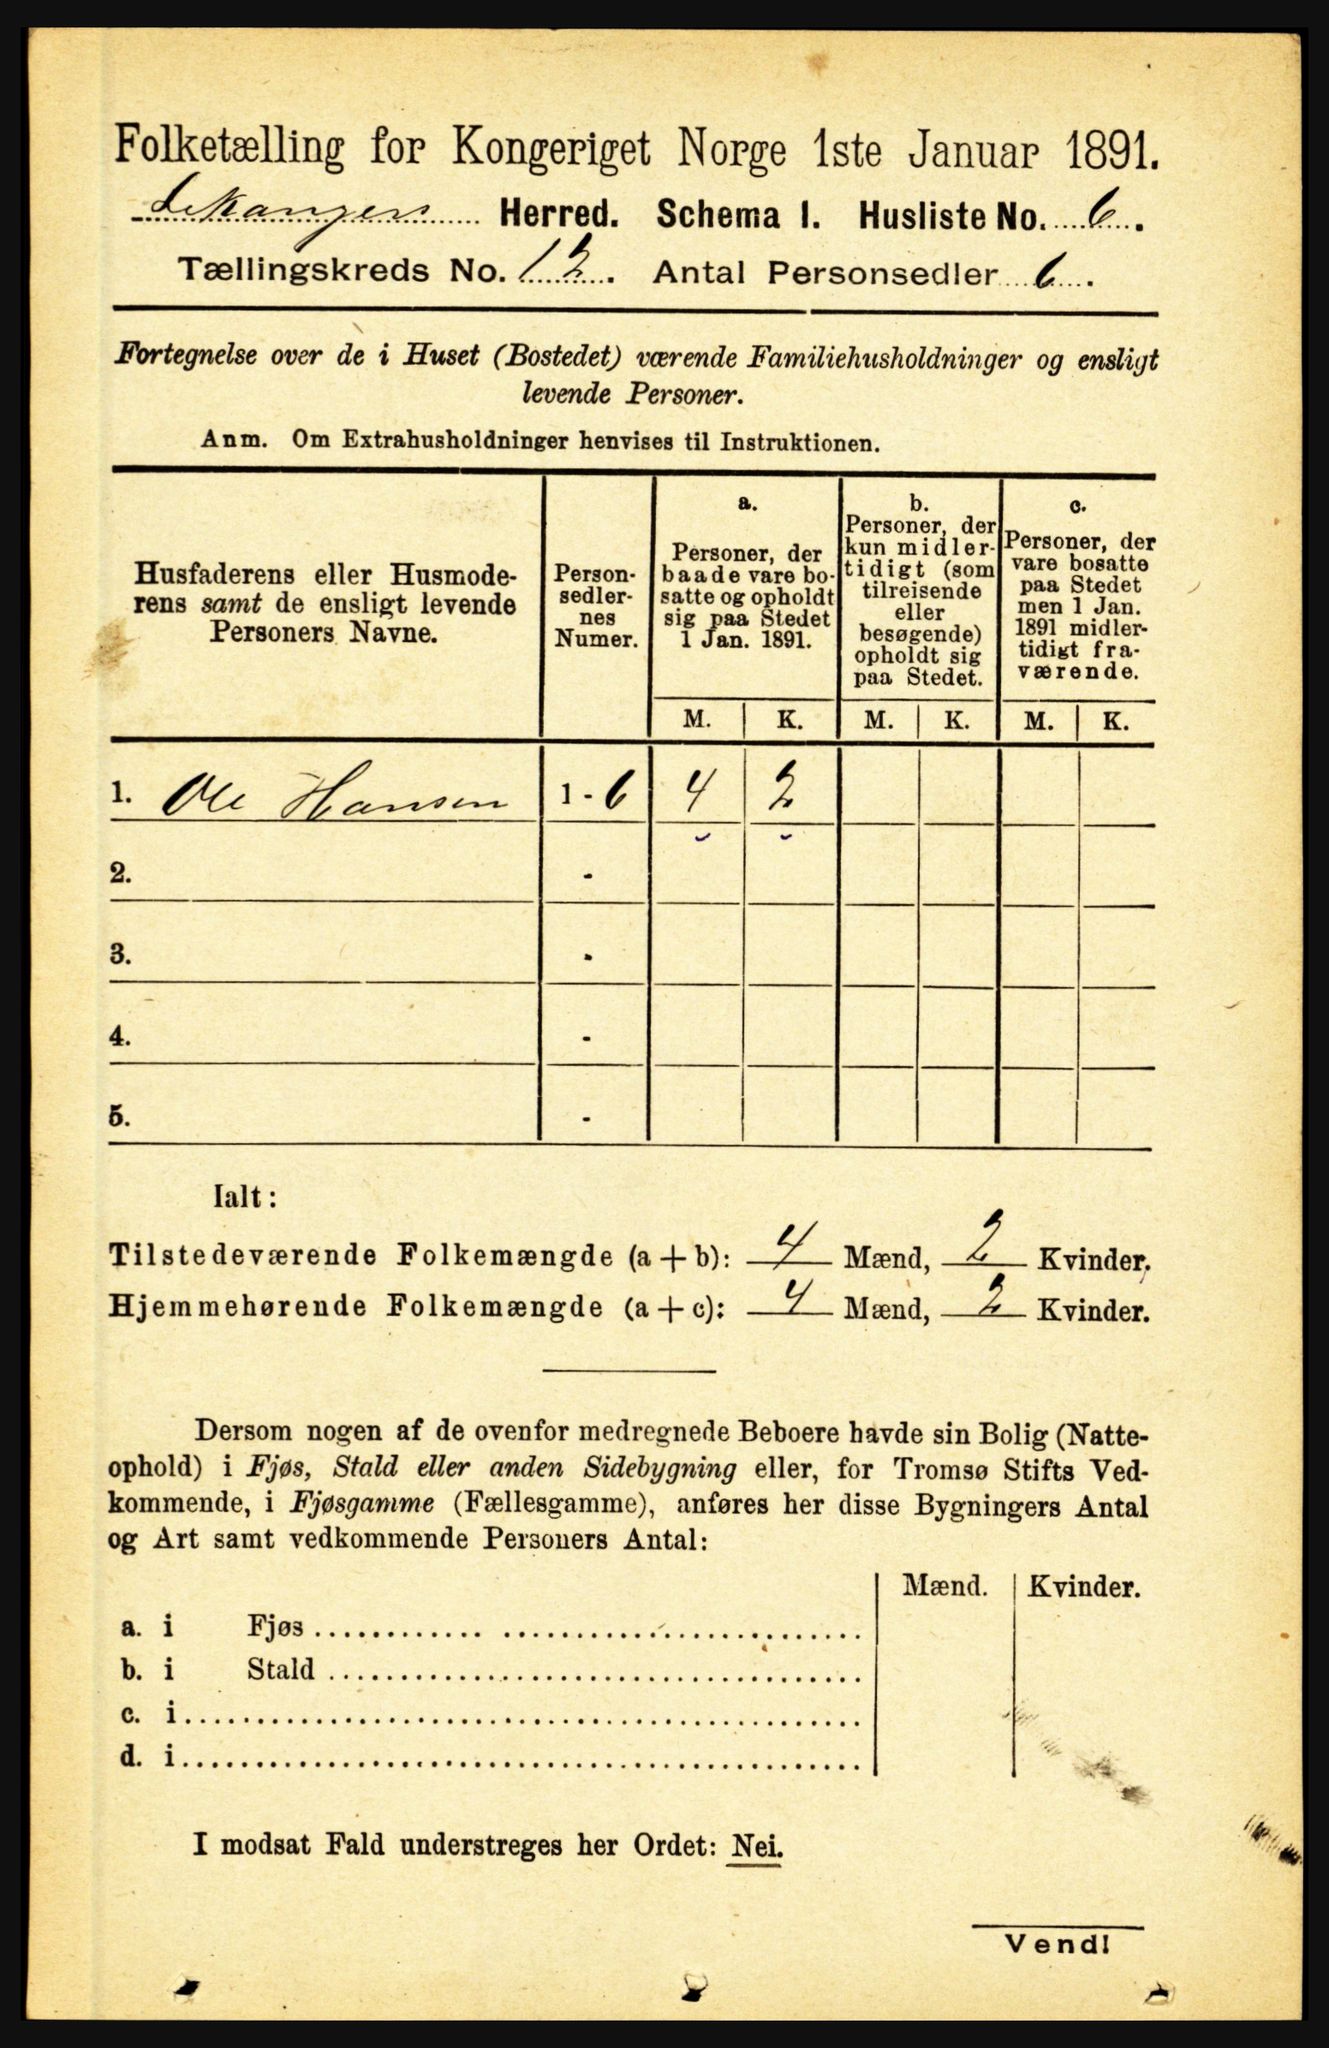 Folketælling for Kongeriget Norge 1ste Januar 1891.
Lekanger Herred. Schema I. Husliste No. 6.
Tællingskreds No. 12. Antal Personsedler 6.
Fortegnelse over de i Huset (Bostedet) værende Familiehusholdninger og ensligt
levende Personer.
Anm. Om Extrahusholdninger henvises til Instruktionen.
Husfaderens eller Husmode-
rens samt de ensligt levende
Personers Navne.
Person-
sedler-
nes
Numer.
a.
Personer, der
baade vare bo-
satte og opholdt
sig paa Stedet
1 Jan. 1891.
b.
Personer, der
kun midler-
tidigt (som
tilreisende
eller
besøgende)
opholdt sig
paa Stedet.
c.
Personer, der
vare bosatte
paa Stedet
men 1 Jan.
1891 midler-
tidigt fra-
værende.
M. K. M. K. M. K.
1. Ole Hansen 1 - 6 4 2
2. -
3. -
4. -
5. -
Ialt:
Tilstedeværende Folkemængde (a + b): 4 Mænd, 2 Kvinder.
Hjemmehørende Folkemængde (a + c): 4 Mænd, 2 Kvinder.
Dersom nogen af de ovenfor medregnede Beboere havde sin Bolig (Natte-
ophold) i Fjøs, Stald eller anden Sidebygning eller, for Tromsø Stifts Ved-
kommende, i Fjøsgamme (Fællesgamme), anføres her disse Bygningers Antal
og Art samt vedkommende Personers Antal:
Mænd. Kvinder.
a. i Fjøs
b. i Stald
c. i
d. i
I modsat Fald understreges her Ordet: Nei.
Vend!